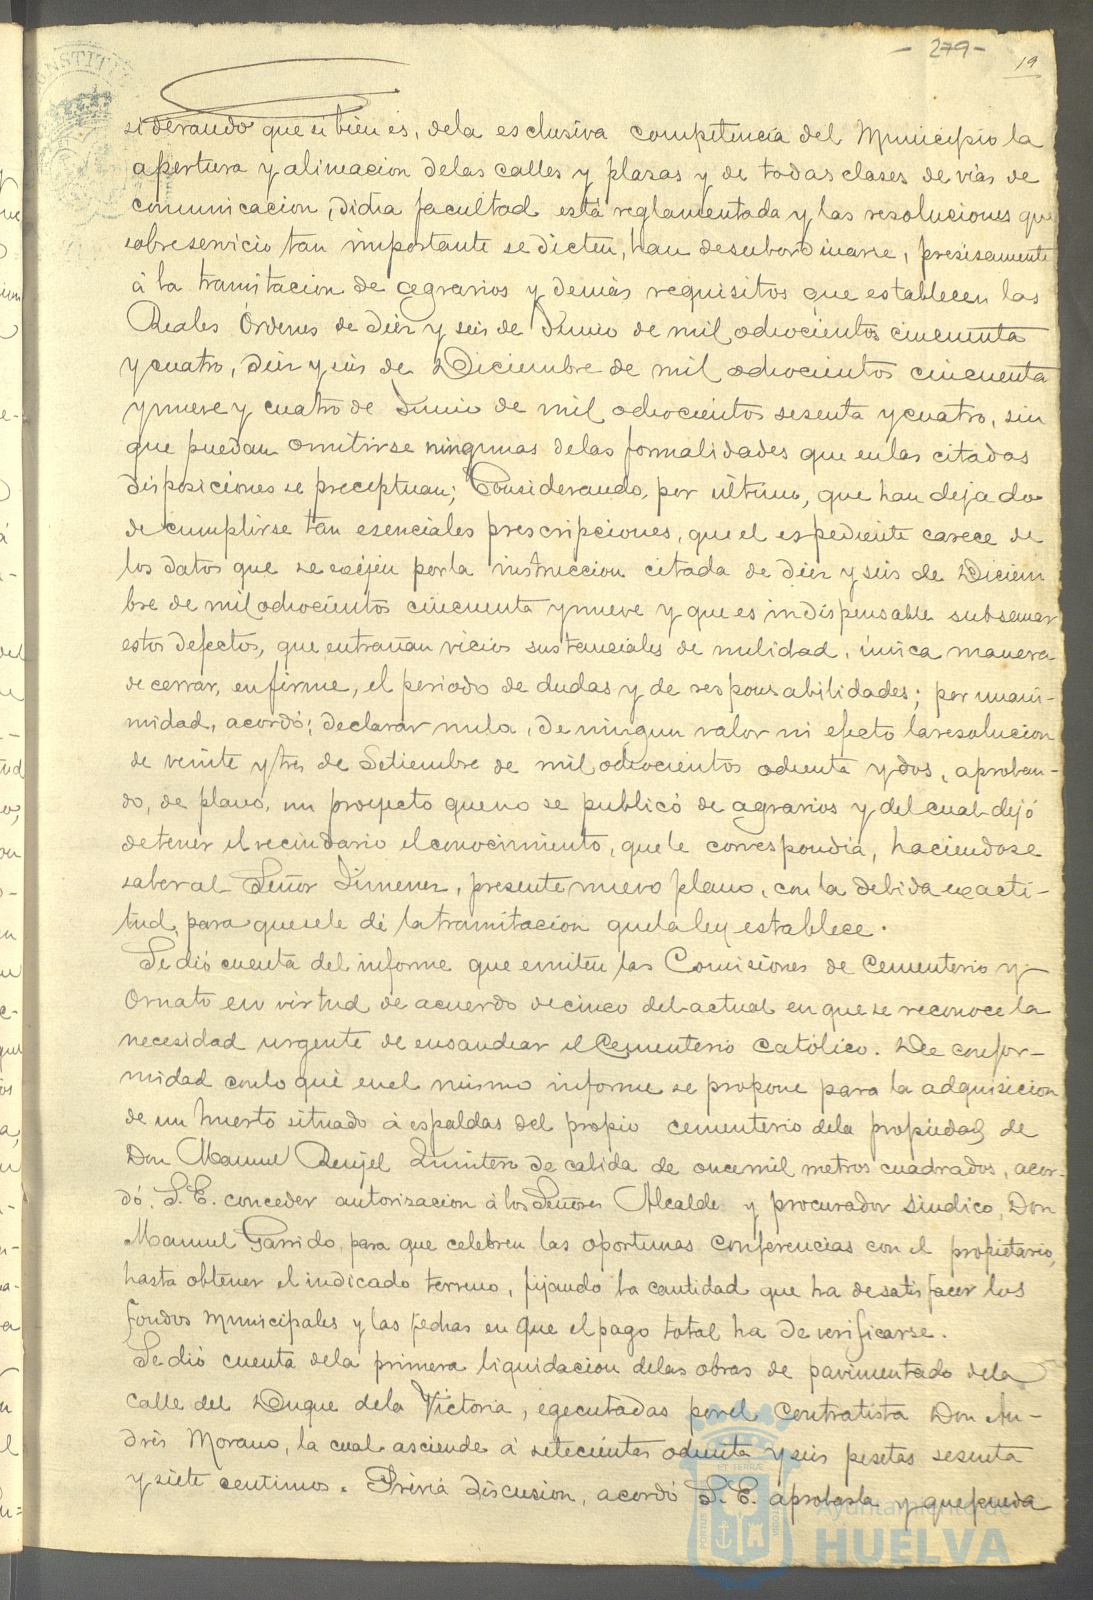 - 279 -
19
siderando que si bien es, dela esclusiva competencia del Municipio la
apertura y alineacion delas calles y plazas y de todas clases de vías de
comunicacion, dicha facultad está reglamentada y las resoluciones que
sobre servicio tan importante se dicten, han desubordinarse, presisamente
á la tramitacion de agrarios y demás requisitos que establecen las
Reales Órdenes de diez y seis de Junio de mil ochocientos cincuenta
y cuatro, diez y seis de Diciembre de mil ochocientos cincuenta
y nueve y cuatro de Junio de mil ochocientos sesenta y cuatro, sin
que puedan omitirse ningunas delas formalidades que enlas citadas
disposiciones se preceptuan; Considerando, por último, que han dejado
de cumplirse tan esenciales prescripciones, que el espediente carece de
los datos que se exijen porla instruccion citada de diez y seis de Diciem
bre de mil ochocientos cincuenta y nueve y que es indispensable subsanar
estos defectos, que entrañan vicios sustanciales de nulidad, única manera
de cerrar, en firme, el periodo de dudas y de responsabilidades; por unani-
midad, acordó; declarar nula, de ningun valor ni efecto la resolucion
de veinte y tres de Setiembre de mil ochocientos ochenta y dos, aproban-
do, de plano, un proyecto que no se publicó de agrarios y del cual dejó
detener el vecindario el conocimiento, que le correspondia, haciendose
saber al Señor Jimenez, presente nuevo plano, con la debida exacti-
tud, para quesele dé la tramitacion quela ley establece.
Se dió cuenta del informe que emiten las Comisiones de Cementerio y
Ornato en virtud de acuerdo de cinco del actual en que se reconoce la
necesidad urgente de ensanchar el Cementerio Católico. De confor-
midad conlo que enel mismo informe se propone para la adquisicion
de un huerto situado á espaldas del propio cementerio dela propiedad de
Don Manuel Renjel Quintero de cabida de oncemil metros cuadrados, acor-
dó, S. E. conceder autorizacion á los Señores Alcalde y procurador sindico, Don
Manuel Garrido, para que celebren las oportunas conferencias con el propietario,
hasta obtener el indicado terreno, fijando la cantidad que ha desatisfacer los
fondos Municipales y las fechas en que el pago total ha de verificarse.
Se dió cuenta dela primera liquidacion delas obras de pavimentado dela
calle del Duque dela Victoria, egecutadas porel contratista Don An-
drés Morano, la cual asciende á setecientas ochenta y seis pesetas sesenta
y siete centimos. Previa discusion, acordó S. E. aprobarla y que pueda
Ayuntamiento de
HUELVA